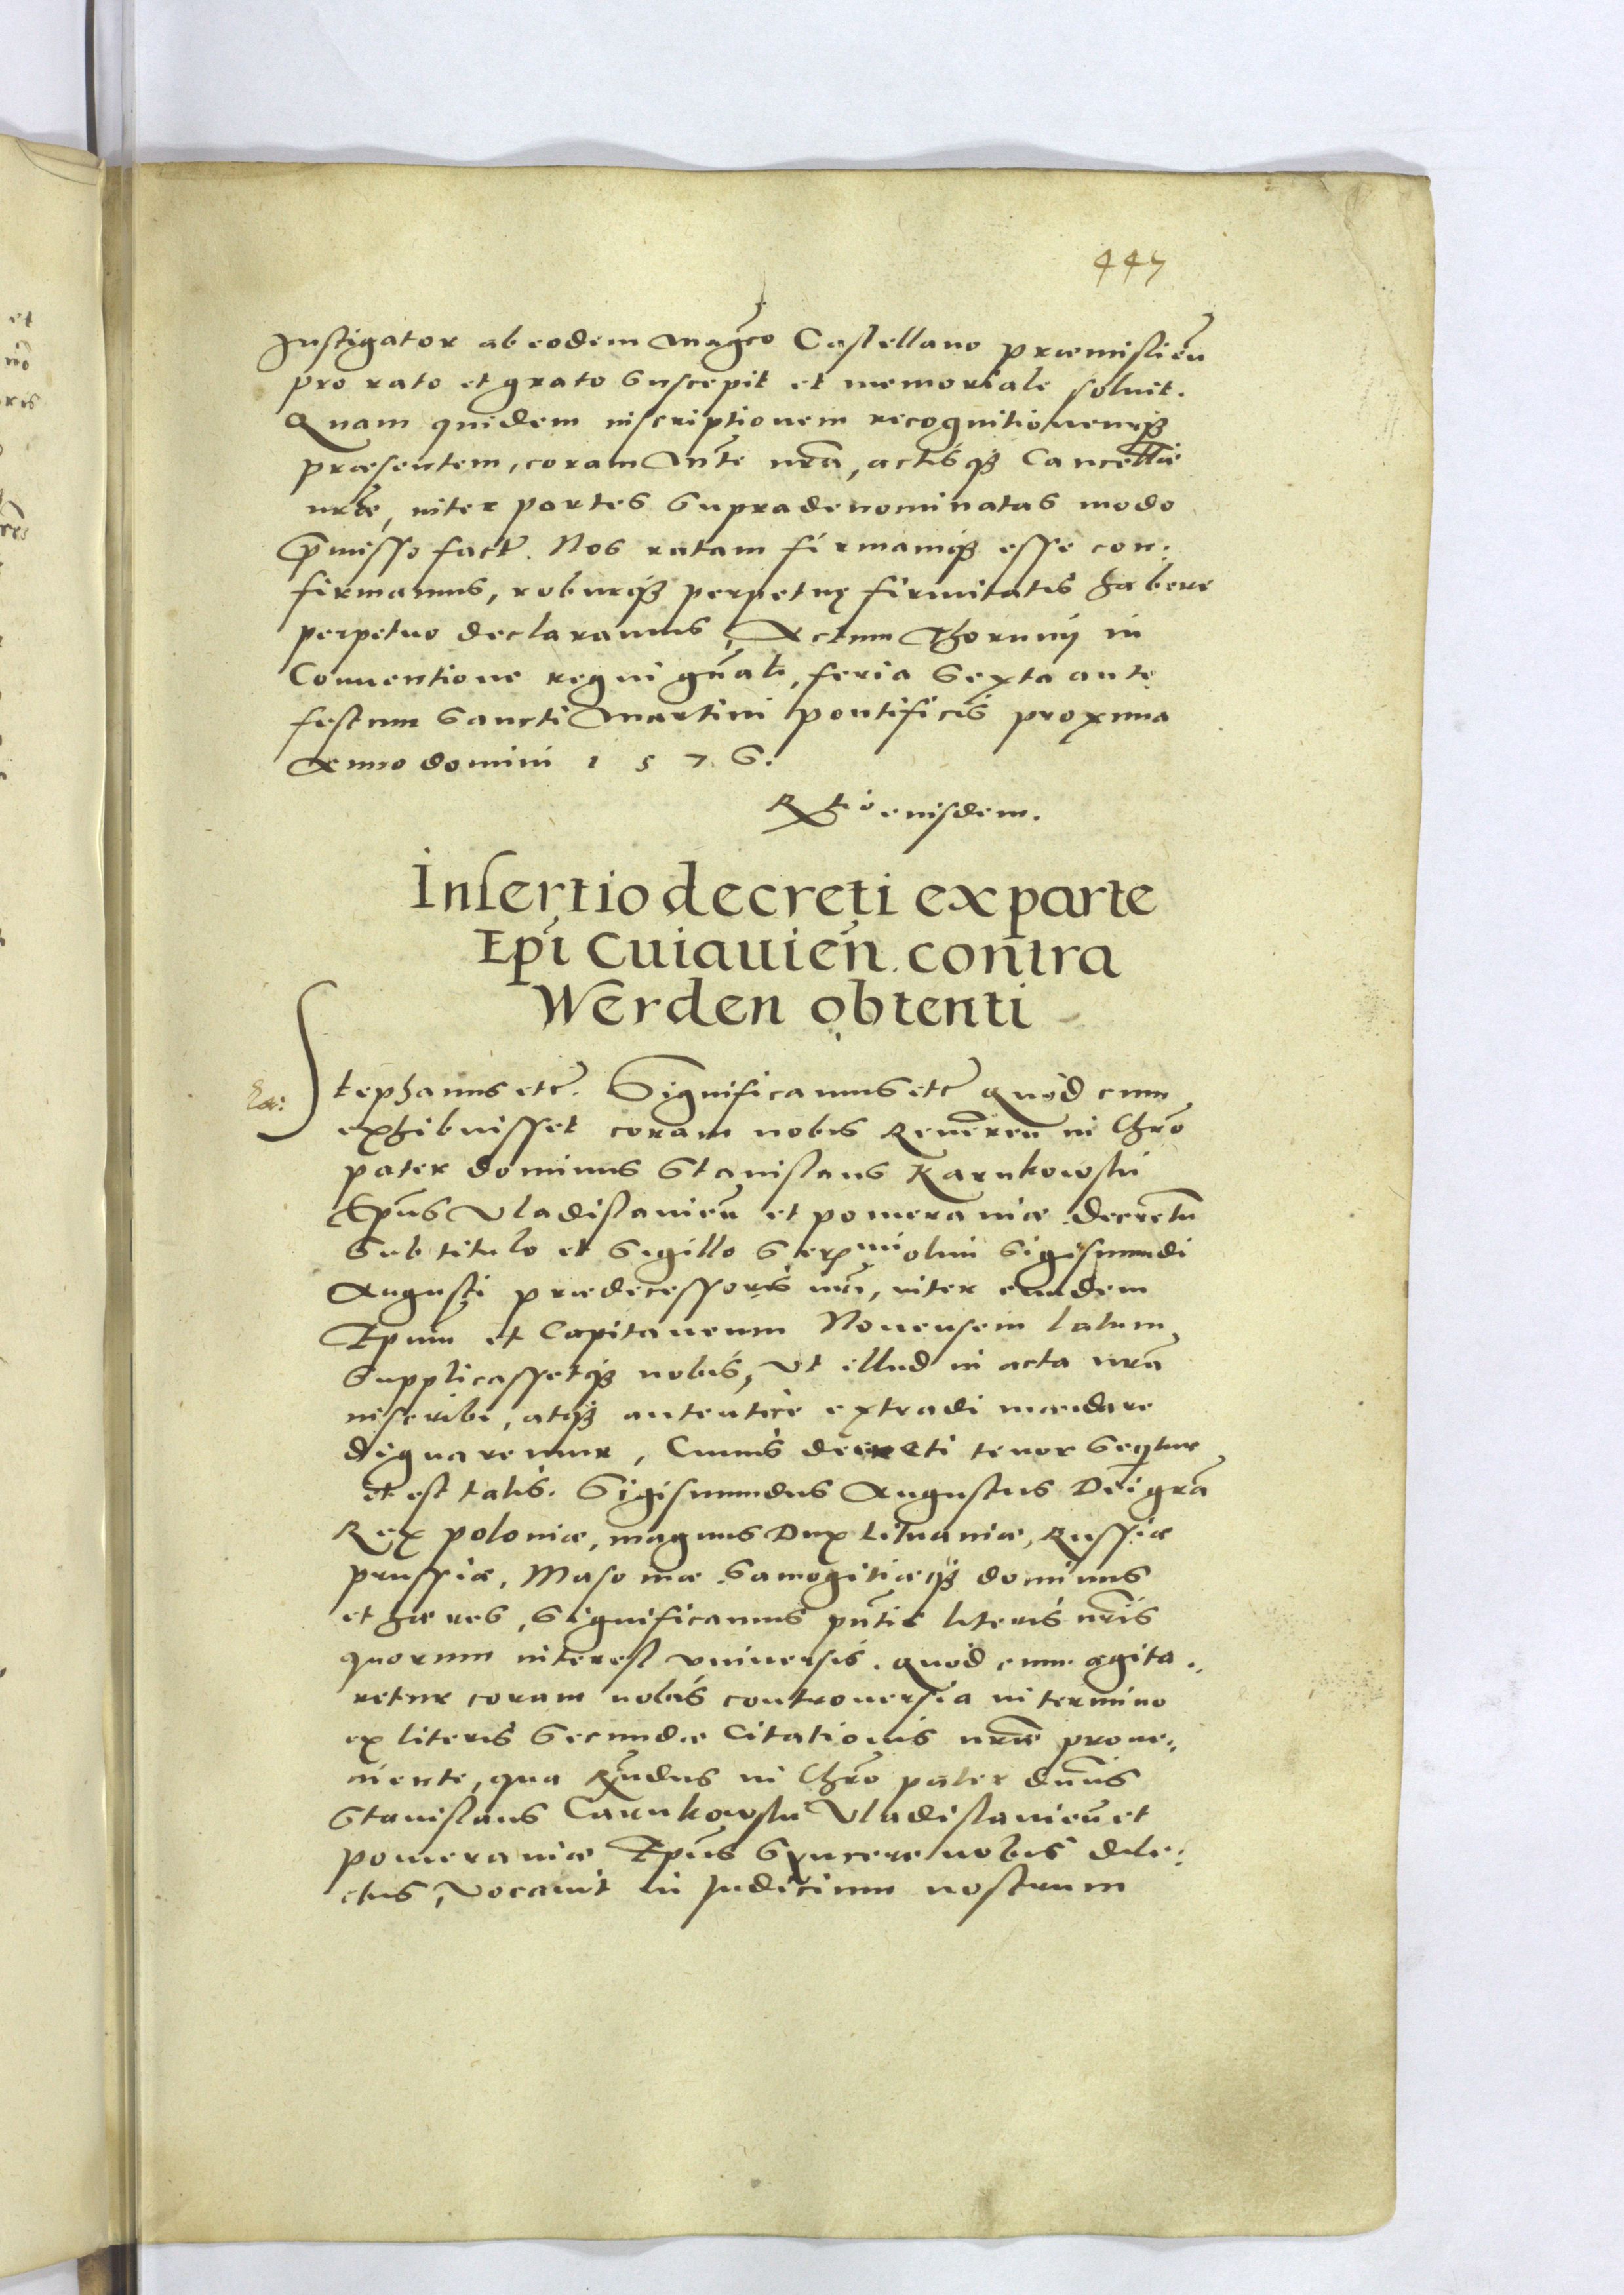 447
Instigator ab eodem Magco Castellano præmislień
pro rato et grato suscepit et memoriale soluit.
Quam quidem inscriptionem recognitionemqꝫ
præsentem, coram Mte nrã, actisqꝫ Cancellæ
nræ, inter partes supradenominatas modo
p̃misso factã. Nos ratam firmamqꝫ esse con:
firmamus, roburqꝫ perpetuę firmitatis habere
perpetuo declaramus, Actum Thorunij in
Conuentione regni gñali, feria sexta ante
festum Sancti Martini pontificis proxima
Anno domini 1 5 7 6.
Rtio eiusdem.
Insertio decreti ex parte
Epi Cuiauień. contra
Werden obtenti
Stephanus etc. Significamus etc quod cum
exhibuisset coram nobis Reuereñ in Chro
pater dominus Stanislaus Karnkowski
Epũs Vladislauień et pomeraniæ decretũ
sub titulo et sigillo Serᵐⁱ olim Sigismundi
Augusti prædecessoris nri, inter eundem
Epum et Capitaneum Nouensem latum
supplicassetqꝫ nobis, Vt illud in acta nrã
inscribi, atqꝫ autentice extradi mandare
dignaremur, Cuius decreti tenor sequitur
et est talis. Sigismundus Augustus Dei grã
Rex poloniæ, magnus Dux Lituaniæ, Russiæ
prussiæ, Masoviæ Samogitiæqꝫ dominus
et hæres, significamus pñtis literis nris
quorum interest vniuersis. quod cum agita:
retur coram nobis controuersia in termino
ex literis secundæ Citationis nræ proue:
niente, qua Rñdus in Chro pater dñus
Stanislaus Carnkowski Vladislauień et
pomeraniæ Epũs syncere nobis dile:
ctus, Vocauit in Judicium nostrum